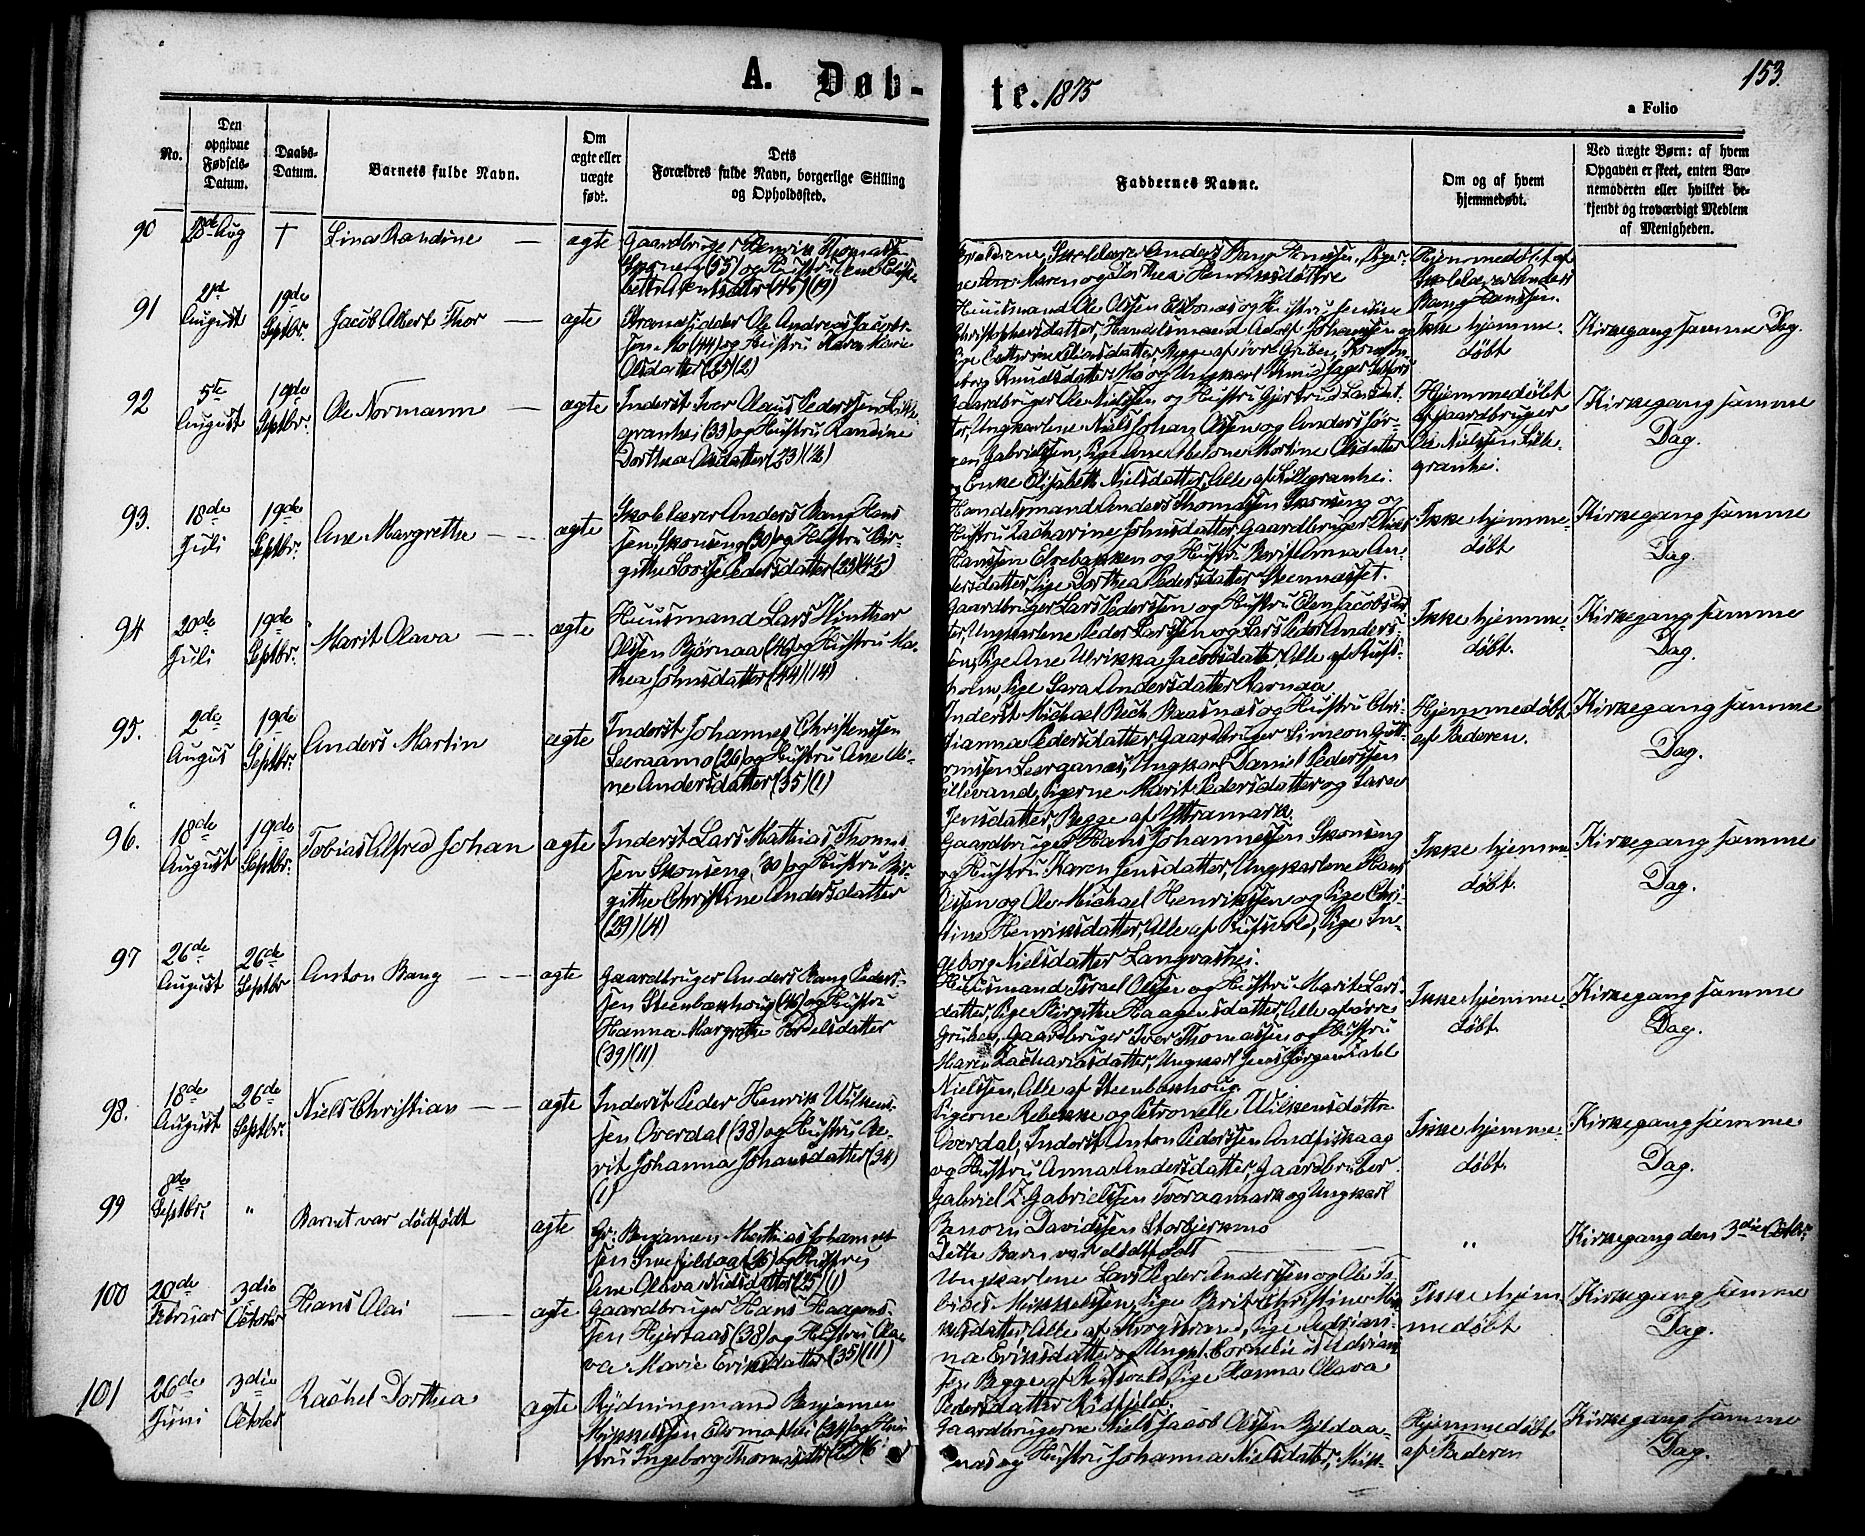 A. Døb-
te. 1875
153.
a Folio
No.
Den opgivne Fødsels-Datum.
Daabs-Datum.
Barnets fulde Navn.
Om ægte eller uægte født.
Dets Forældres fulde Navn, borgerlige Stilling og Opholdssted.
Faddernes Navne.
Om og af hvem hjemmedøbt.
Ved uægte Børn: af hvem Opgaven er skeet, enten Barnemoderen eller hvilket bekjendt og troværdigt Medlem af Menigheden.
90
28de Aug
†
Lina Randine
ægte
Gaardbruger Henrik Thomassen
Skonseng (55) og Hustru
(45) (19)
Forældrene, Skolelærer Anders Bang Hanssen, Piger-
ne Ane Maren og Dorthea Henriksdøttre
Hjemmedøbt af
Skolelærer Anders
Bang Hanssen.
91
August
19de
Septbr.
Jacob Albert Thor
ægte
Strandsidder Ole Andreas Jacob-
sen Mo (44) og Hustru Karen Marie
Olsdatter (25) (2)
Huusmand Ole Olsen og Hustru
Christophersdatter, Handelsmand Adolf Johannesen og
Knudsdatter Mo og Ungkarl
Ikke hjemme-
døbt
Kirkegang samme Dag.
92
5te
August
19de
Septbr.
Ole Normann
ægte
Inderst Iver Olaus Pederssen Lille
granhei (33) og Hustru Randine
Dorthea Olsdatter (23) (½)
Gaardbruger Ole Nielssen og Hustru Gjertrud Larsdat-
ter, Ungkarlene Niels Johan Olssen og Anders Jør-
gen Gabrielssen, Pige Ane Martine Olsdatter
og Enke Elisabeth Nielsdatter, Alle af Lillegranhei.
Hjemmedøbt
af Gaardbruger
Ole Nielssen Lille-
granhei.
Kirkegang samme
Dag.
93.
18de
Juli
19de
Septbr.
Ane Margrethe
ægte
Skolelærer Anders Bang Hans
sen Skonseng (30) og Hustru Bir-
githe Lovise Pedersdatter (23) (4½)
Handelsmand Anders Thomassen Skonseng og
Hustru Zacharine Johnsdatter, Gaardbruger
Hanssen Elvebakken og Hustru Berit Anna An-
dersdatter, Pige Dorthea Pedersdatter Steennæsset.
Ikke hjemme-
døbt
Kirkegang samme
Dag.
94
20de
Juli
19de
Septbr.
Marit Olava
ægte
Huusmand Lars Winther
Olssen Bjørnaa (46) og Hustru Ma-
thea Johnsdatter (44) (14)
Gaardbruger Lars Pederssen og Hustru Elen Jacobsdat-
ter, Ungkarlene Peder Larssen og Lars Peder Anders-
sen, Pige Ane Ulrikka Jacobsdatter, Alle af
holm, Pige Sara Andersdatter Ravnaa
Ikke hjemme-
døbt.
Kirkegang samme
Dag.
95.
2de
Augus
19de
Septbr.
Anders Martin
ægte
Inderst Johannes Christenssen
Leeraamo (26) og Hustru Ane Ol-
ine Andersdatter (35) (1)
Inderst Michael Bech Baasnæs og Hustru Chri-
stianna Pedersdatter, Gaardbruger Simeon Gutt-
ormssen Leerganæs, Ungkarl Daniel Pederssen
Lillevand, Pigerne Marit Pedersdatter og Sara
Jensdatter, Begge af Yttramark.
Hjemmedøbt
af Faderen.
Kirkegang samme
Dag.
96.
18de
August
19de
Septbr.
Tobias Alfred Johan
ægte
Inderst Lars Mathias Thomas
sen Skonseng (30) og Hustru Bir-
githe Christine Andersdatter
(29) (4)
Gaardbruger Hans Johannessen Skonseng
og Hustru Karen Jensdatter, Ungkarlene Hans
Olssen og Ole Michael Henrikssen og Pige Chri-
stine Henriksdatter, Alle af Rufsvold, Pige In-
geborg Nielsdatter Langvashei.
Ikke hjemme-
døbt.
Kirkegang samme
Dag.
97
26de
August
26de
Septbr
Anton Bang
ægte
Gaardbruger Anders Bang Peders-
sen Steenbækhoug (46) og Hustru
Hanna Margrethe Fordelsdatter
(39) (11)
Huusmand Israel Olssen og Hustru Marit Lars-
datter, Pige Birgithe Haagensdatter, Alle af øvre
Gruben, Gaardbruger Iver Thomassen og Hustru
Maren Zachariasdatter, Ungkarl Jens Jørgen
Nielssen, Alle af Steenbækhoug.
Ikke hjemme-
døbt.
Kirkegang samme
Dag.
98.
18de
August
26de
Septbr.
Niels Christian
ægte
Inderst Peder Henrik Wilkens-
sen Overdal (38) og Hustru Be-
rit Johanna Johansdatter (34)
(1)
Pigerne Rebekka og Petronelle Wilkensdøttre
Overdal, Inderst Anton Pederssen Andfiskaag
og Hustru Anna Andersdatter, Gaardbruger
Gabriel Z. Gabrielssen Tveraamark og Ungkarl
Benoni Davidssen Storbjerkmo
Ikke hjemme-
døbt.
Kirkegang samme
Dag.
99
8de
Septbr.
"
Barnet var dødfødt
ægte
Gr: Benjamin Mathias Johannes
sen Snefjeldaa (26) og Hustru
Ane Olava Nielsdatter (25) (1)
Dette Barn var dødfødt
"
Kirkegang den 3die Octbr.
100
20de
Februar
3die
October
Hans Olai
ægte
Gaardbruger Hans Haagens-
sen Hjertaas (38) og Hustru Ola-
va Marie Eriksdatter (35) (11)
Ungkarlene Lars Peder Anderssen og Ole To-
bias Mikkelssen, Pige Berit Christine Mik-
kelsdatter, Alle af Pige Adrian-
na Eriksdatter og Ungk. Cornelius Adrian
sen Begge af Rufsvold, Pige Hanna Olava
Pedersdatter Rødfjeld.
Ikke hjem
medøbt
Kirkegang samme
Dag.
101
26de
Juni
3die
October
Rachel Dorthea
ægte
Rydningsmand Benjamin
Mikkelssen og Hu-
stru Ingeborg Thomasdatter
Gaardbrugerne Niels Jacob Olssen Bildaa-
næs og Hustru Johanna Nielsdatter, Mik-
Hjemmedøbt
af Faderen
Kirkegang samme
Dag.